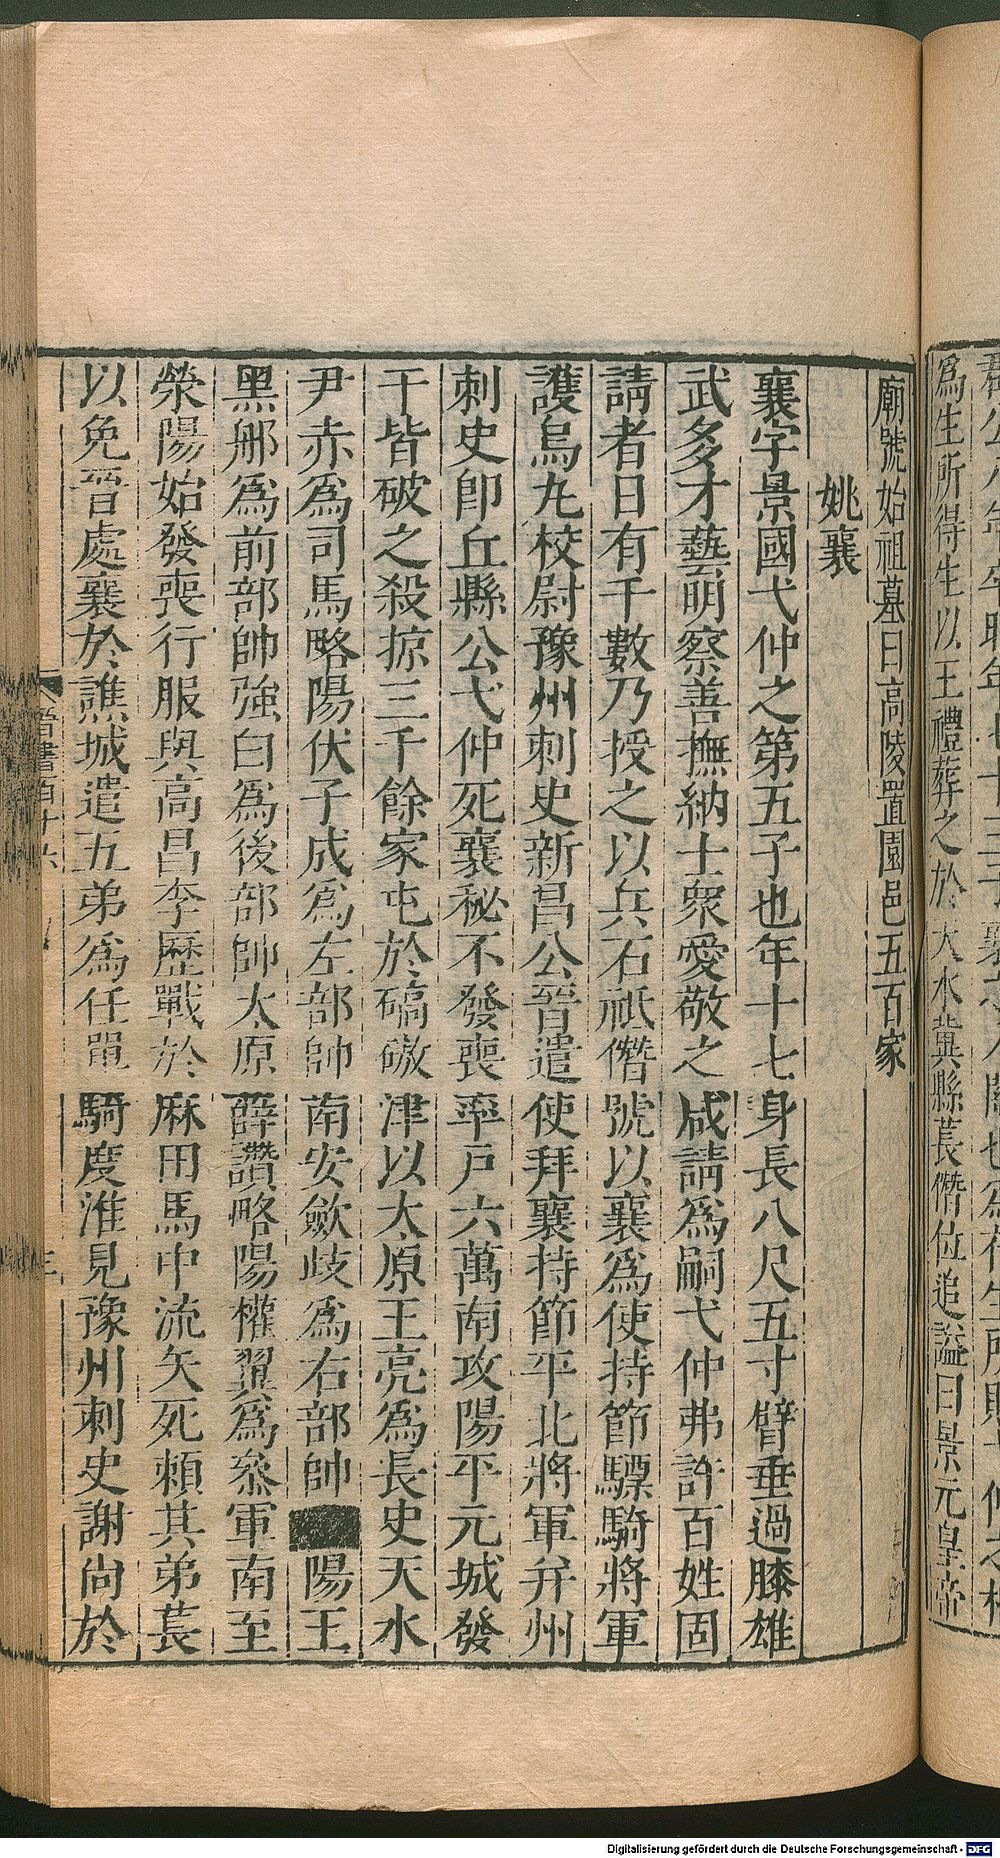 爲生所得生以王禮葬之於天水冀縣萇僭位追謚曰景元皇帝
廟號始祖墓曰高陵置園邑五百家
姚襄
襄字景國弋仲之第五子也年十七身長八尺五寸臂垂過膝雄
武多才藝明察善撫納士衆愛敬之咸請爲嗣弋仲弗許百姓固
請者日有千數乃授之以兵石祗僭號以襄爲使持節驃騎將軍
護烏九校尉豫州刺史新昌公晉遣使拜襄持節平北將軍并州
刺史卽丘縣公弋仲死襄秘不發喪率戸六萬南攻陽平元城發
干皆破之殺掠三千餘家屯於碻磝津以太原王亮爲長史天水
尹赤爲司馬略陽伏子成爲左部帥南安歛歧爲右部帥陽王
黑那爲前部帥強白爲後部帥太原薛讚略陽權翼爲叅軍南至
滎陽始發喪行服與高昌李歷戰於麻田馬中流矢死賴其弟萇
以免晉處襄於譙城遣五弟爲任單騎度淮見豫州刺史謝尚於
晉書百十六
三
Digitalisierung gefördert durch die Deutsche Forschungsgemeinschaft - DFG